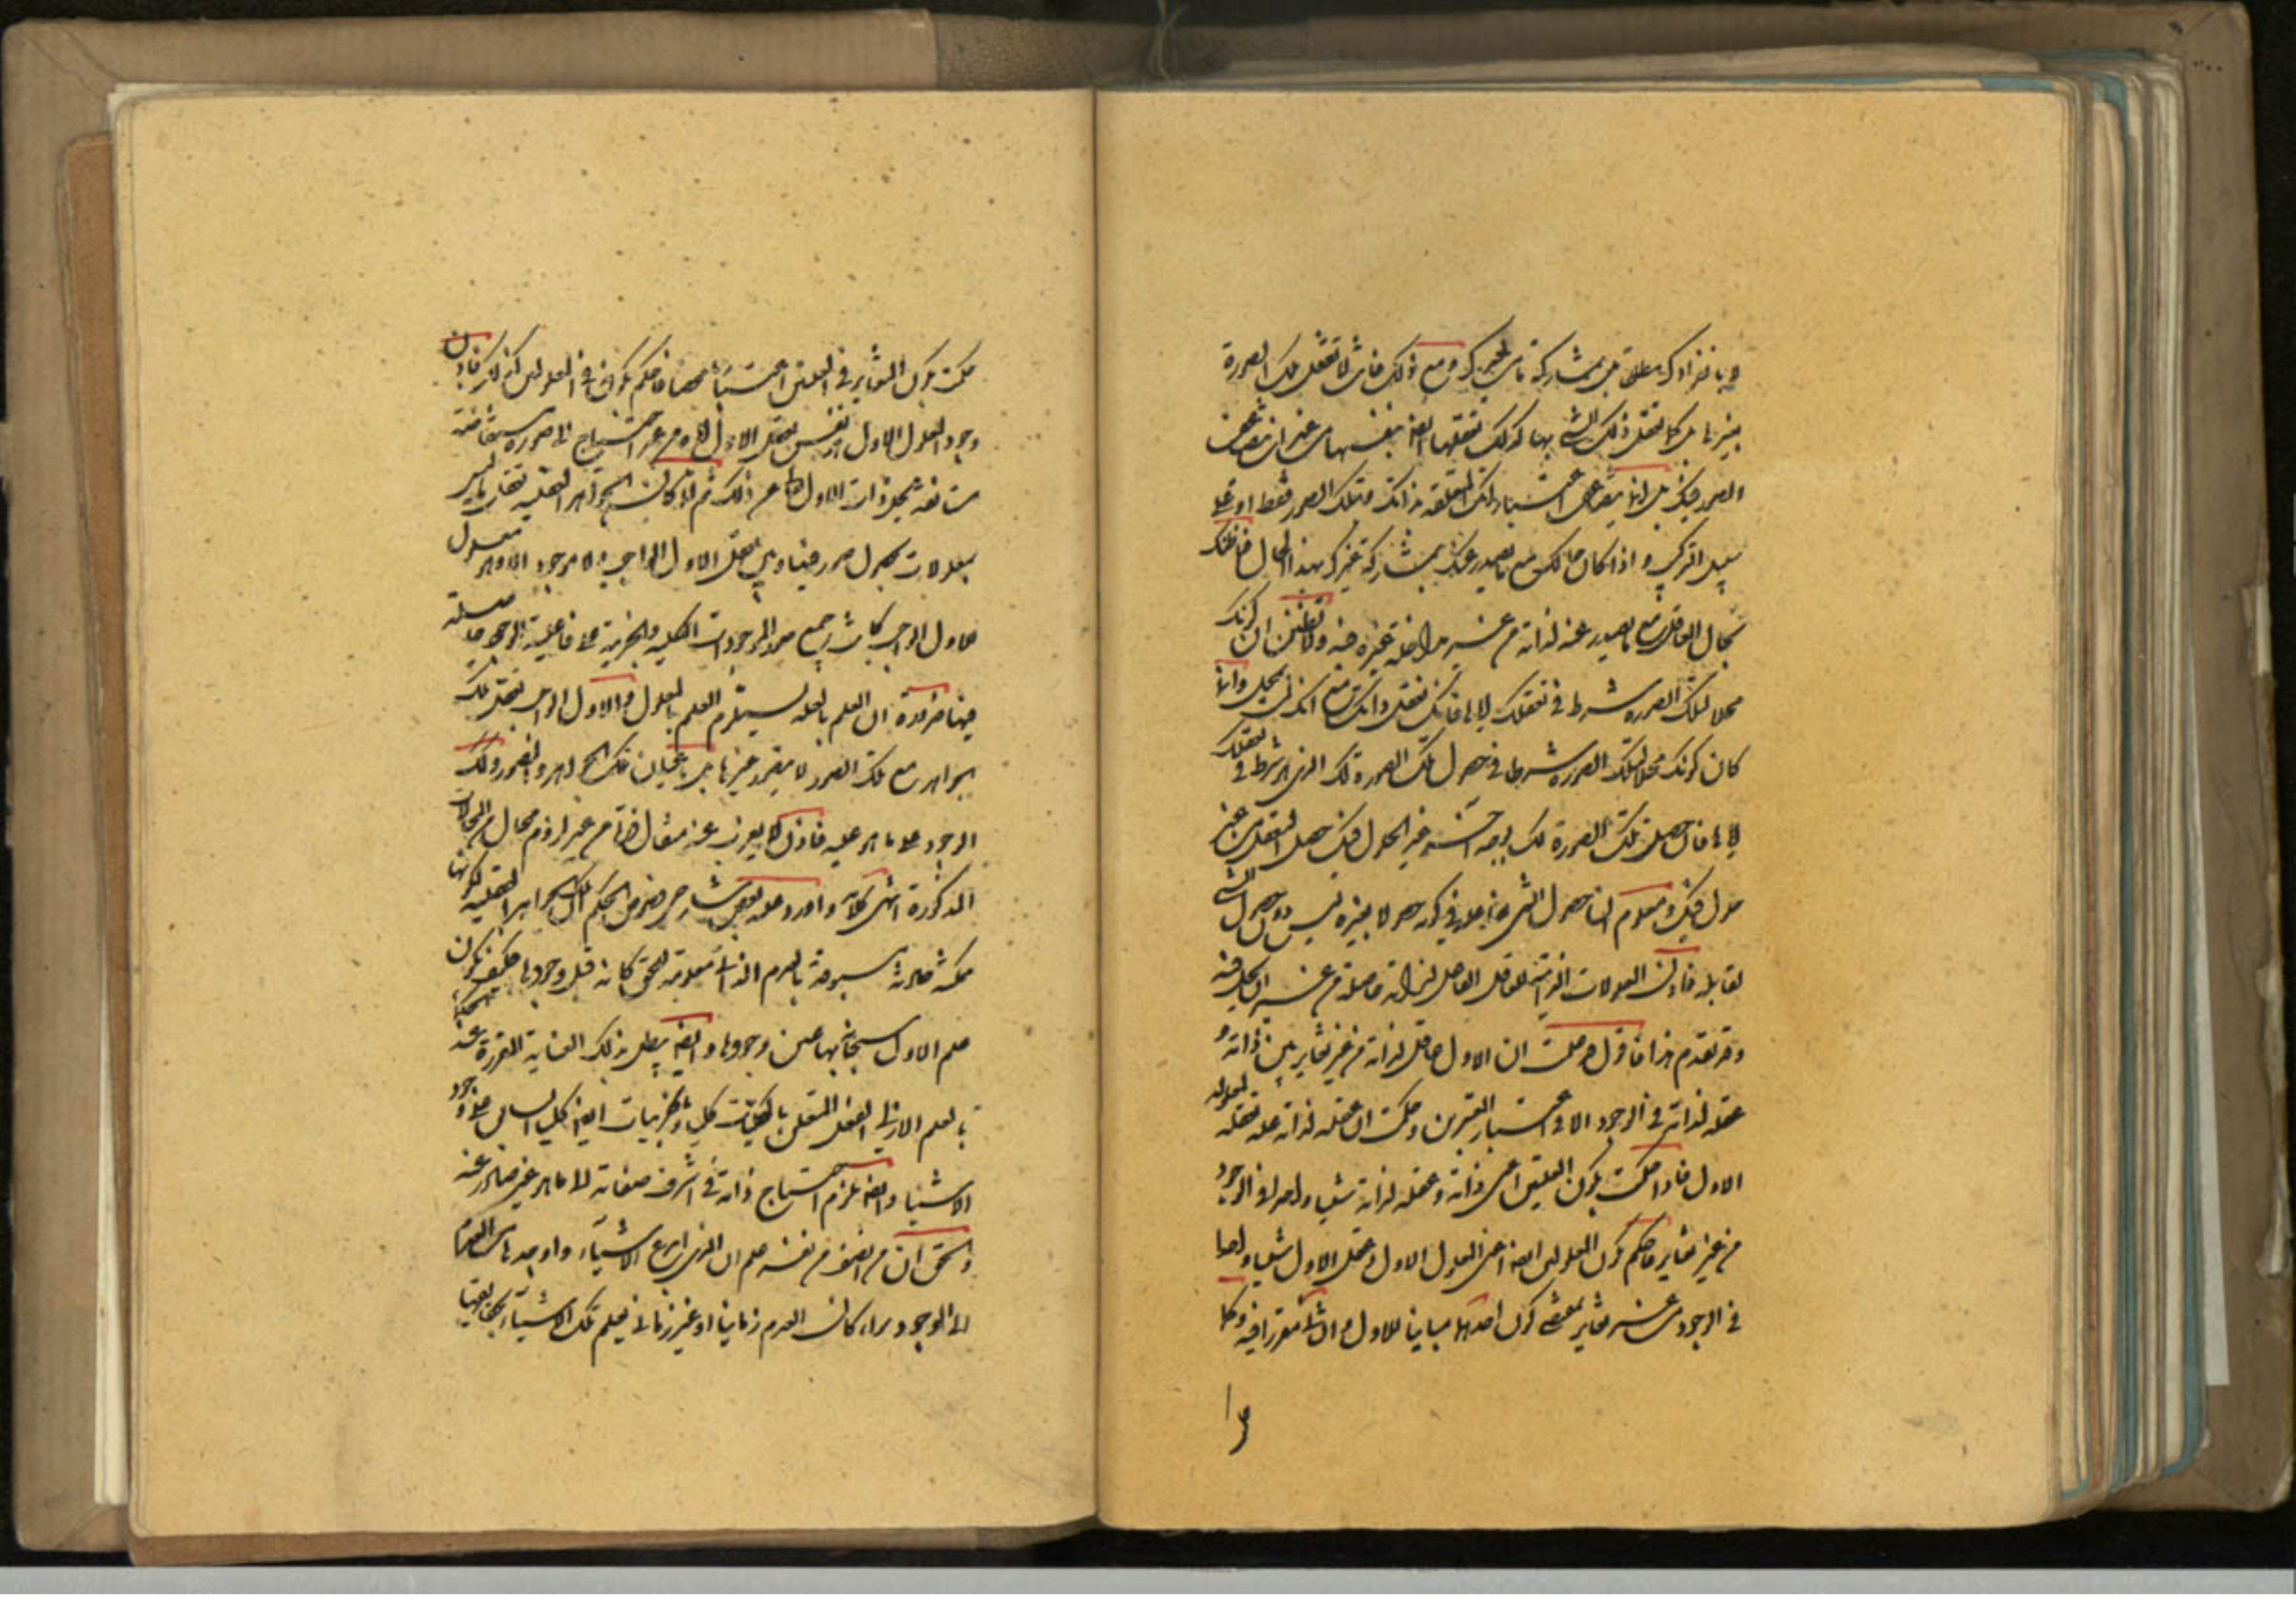 لا بانفرادك مطلقا بل بمشاركة ما من غيرك ومع ذلك فانت لا تعقل تلك الصورة
بغيرها بل كما تعقل ذلك الشيء بها كذلك تعقلها ايضا بنفسها من غير ان تتضاعف
الصور فيك بل انما يتضاعف اعتباراتك المتعلقة بذاتك وبتلك الصور فقط او على
سبيل التركيب واذا كان حالك مع ما يصدر عنك بمشاركة غيرك بهذا الحال فما ظنك
بحال العاقل مع ما يصدر عنه لذاته من غير مداخلة غيره فيه ولا تظنن ان كونك
محلا لتلك الصورة شرط في تعقلك لاياها فانك تعقل ذاتك مع انك لست بمحل وانما
كان كونك محلا لتلك الصورة شرطا في حصول تلك الصورة لك الذي هو شرط في تعقلك
لاياها فان حصلت تلك الصورة لك بوجه آخر غير الحلول فيك حصل التعقل من غير
حلول فيك ومعلوم ان حصول الشيء لفاعله في كونه حصولا لغيره ليس دون حصول الشيء
لقابله فاذن المعلولات الذاتية للعاقل الفاعل لذاته حاصلة من غير ان يحل فيه
وقد تقدم هذا فاقول قد علمت ان الاول عاقل لذاته من غير تغاير بين ذاته و
عقله لذاته في الوجود الا في اعتبار المعتبرين وحكمت ان عقله لذاته علة لعقله لمعلوله
الاول فاذا حكمت بكون العلتين اعني ذاته وعقله لذاته شيئا واحدا في الوجود
من غير تغاير فاحكم بكون المعلولين ايضا اعني المعلول الاول وعقل الاول شيئا واحدا
في الوجود من غير تغاير يقتضي كون احدهما مباينا للاول والثاني متقررا فيه وكما
حكمت بكون التغاير في العلتين اعتباريا محضا فاحكم بكونه في المعلولين كذلك فاذن
وجود المعلول الاول هو نفس تعقل الاول اياه من غير احتياج الى صورة مستفاضة
مستانفة تحل ذات الاول تعالى عن ذلك ثم لما كانت الجواهر العقلية تعقل ما ليس
بمعلولات بحصول صور فيها وهي تعقل الاول الواجب ولا موجود الا وهو معلول
للاول الواجب كانت جميع صور الموجودات الكلية والجزئية على ما عليه الوجود حاصلة
فيها ضرورة ان العلم بالعلة يستلزم العلم بالمعلول والاول الواجب يعقل تلك
الجواهر مع تلك الصور لا بصور غيرها بل باعيان تلك الجواهر والصور وكذلك
الوجود على ما هو عليه فاذن لا يعزب عنه مثقال ذرة من غير لزوم محال من المحالات
المذكورة انتهى كلامه واورد عليه بعض شارحي فصوص الحكم ان تلك الجواهر العقلية لكونها
ممكنة حادثة مسبوقة بالعدم الذاتي معلومة للحق كانه قبل وجودها فكيف يكون
علم الاول سبحانه بها عين وجودها وايضا يبطل بذلك العناية المقررة عند الحكماء
بالعلم الازلي الفعلي المتعلق بالكليات كليا وبالجزئيات ايضا كليا السابق على وجود
الاشياء وايضا يلزم احتياج ذاته في اشرف صفاته الى ما هو غير صادر عنه
والحق ان من انصف من نفسه علم ان الذي ابدع الاشياء واوجدها من العدم
الى الوجود سواء كان العدم زمانيا او غير زماني يعلم تلك الاشياء بحقائقها